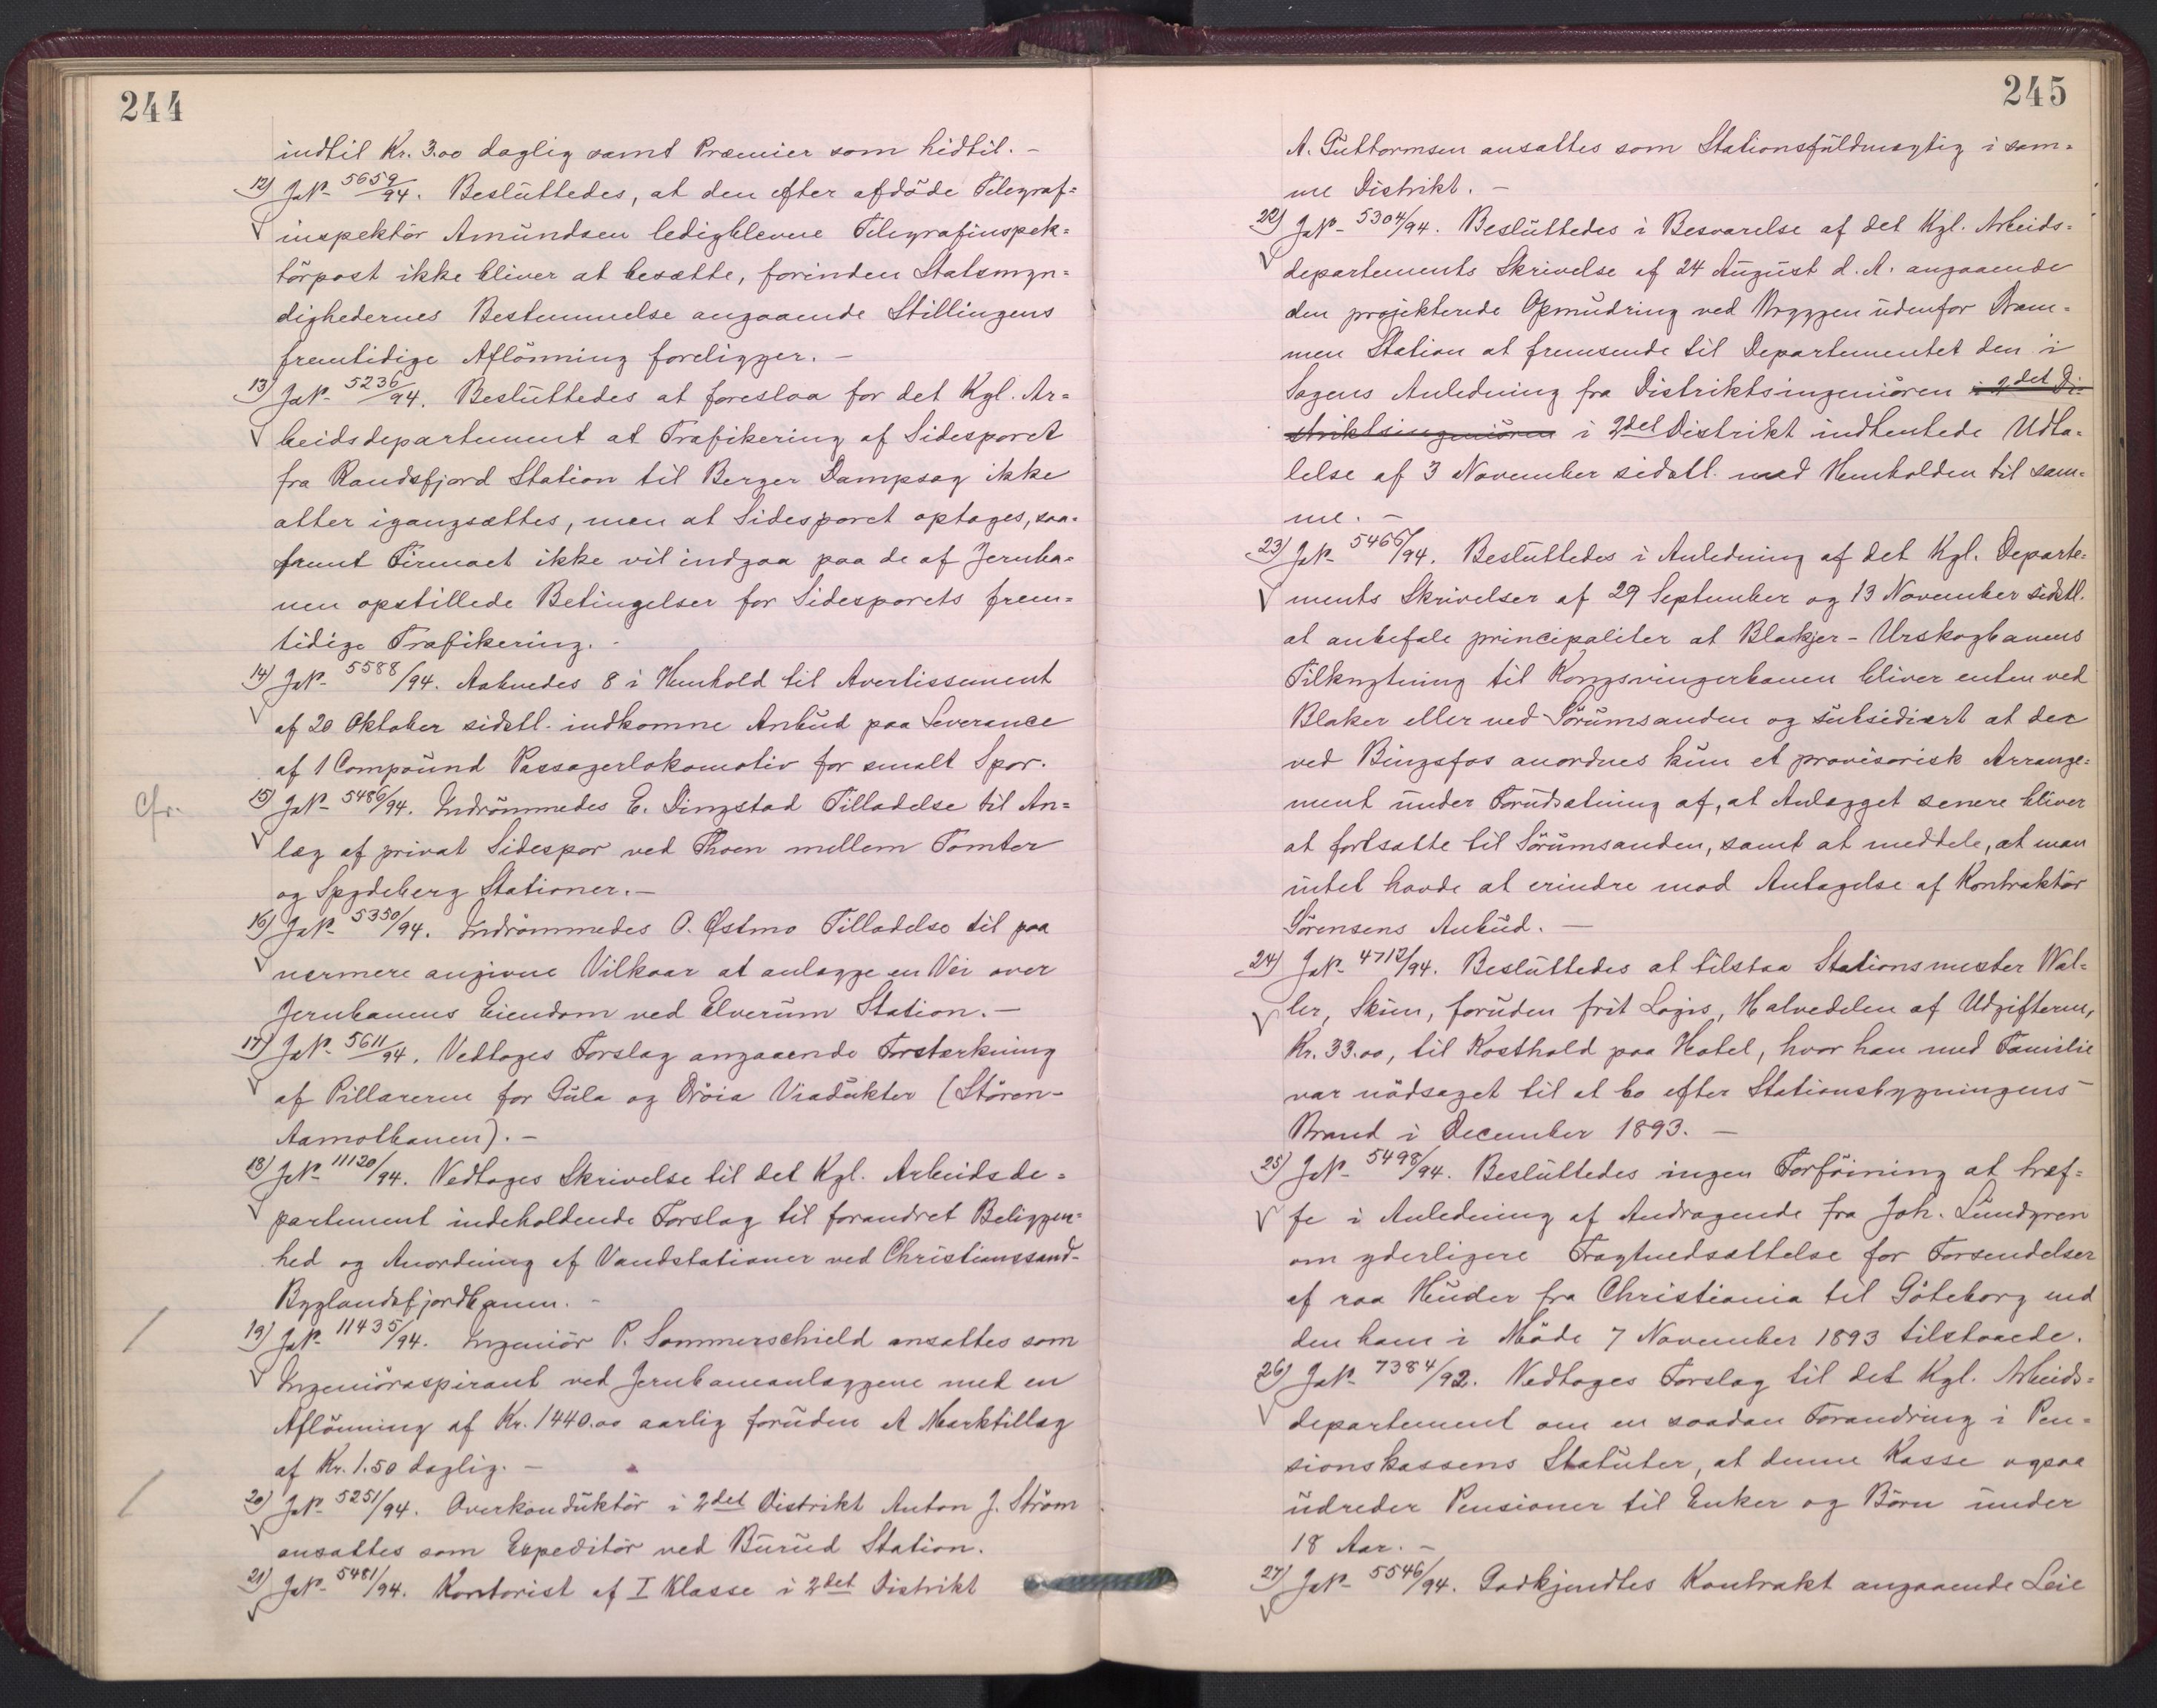 244
indtil Kr. 3.00 daglig samt Præmier som hidtil. -
12) JN- 5659/94. Besluttedes, at den efter afdöde Telegraf=
inspektör Amundsen ledigblevne Telegrafinspek=
törpost ikke bliver at besætte, forinden Statsmyn=
dighedernes Bestemmelse angaaende Stillingens
fremtidige Aflönning foreligger. -
13) JN- 5236/94. Besluttedes at foreslaa for det Kgl. Ar=
beidsdepartement at Trafikering af Sidesporet
fra Randsfjord Station til Berger Dampsag ikke
atter igangsættes, men at Sidesporet optages, saa=
fremt Firmaet ikke vil indgaa paa de af Jernba=
nen opstillede Betingelser for Sidesporets frem=
tidige Trafikering. -
14) JN- 5588/94. Aabnedes 8 i Henhold til Avertissement
af 20 Oktober sidstl. indkomne Anbud paa Leverance
af 1 Compound Passagerlokomotiv for smalt Spor.
Cfr.
15) JN- 5486/94. Indrömmedes E. Dingstad Tilladelse til An=
læg af privat Sidespor ved Thoen mellem Tomter
og Spydeberg Stationer. -
16) JN- 5350/94. Indrömmedes O. Østmo Tilladelse til paa
nærmere angivne Vilkaar at anlægge en Vei over
Jernbanens Eiendom ved Elverum Station. -
17) JN- 5611/94. Vedtoges Forslag angaaende Forstærkning
af Pillarerne for Gula og Dröia Viadukter (Stören-
Aamotbanen). -
18) JN- 11120/94. Vedtoges Skrivelse til det Kgl. Arbeidsde=
partement indeholdende Forslag til forandret Beliggen=
hed og Anordning af Vandstationer ved Christianssand-
Byglandsfjordbanen. -
19) JN- 11435/94. Ingeniör P. Sommerschield ansattes som
Ingeniöraspirant ved Jernbaneanlæggene med en
Aflönning af Kr. 1440.00 aarlig foruden et Marktillæg
af Kr. 1.50 daglig. -
20) JN- 5251/94. Overkonduktör i 2det Distrikt Anton J. Ström
ansattes som Expeditör ved Burud Station.
21) JN- 5481/94. Kontorist af I Klasse i 2det Distrikt
245
A. Guttormsen ansattes som Stationsfuldmægtig i sam=
me Distrikt. -
22) JN- 5304/94. Besluttedes i Besvarelse af det Kgl. Arbeids=
departements Skrivelse af 24 August d. A. angaaende
den projekterede Opmudring ved Bryggen udenfor Dram=
men Station at fremsende til Departementet den i
Sagens Anledning fra Distriktsingeniören i 2det Di-
striktsingeniören i 2det Distrikt indhentede Udta=
lelse af 3 November sidstl. med Henholden til sam=
me. -
23) JN- 5466/94. Besluttedes i Anledning af det Kgl. Departe=
ments Skrivelser af 29 September og 13 November sidstl.
at anbefale principaliter at Blakjer-Urskogbanens
Tilknytning til Kongsvingerbanen bliver enten ved
Blaker eller ved Sörumsanden og subsidiært at der
ved Bingsfos anordnes kun et provisorisk Arrange=
ment under Forudsætning af, at Anlægget senere bliver
at fortsætte til Sörumsanden, samt at meddele, at man
intet havde at erindre mod Antagelse af Kontraktör
Sörensens Anbud. -
24) JN- 4712/94. Besluttedes at tilstaa Stationsmester Wal=
ler, Skien, foruden frit Logis, Halvedelen af Udgifterne,
Kr. 33.00, til Kosthold paa Hotel, hvor han med Familie
var nödsaget til at bo efter Stationsbygningens
Brand i December 1893. -
25) JN- 5498/94. Besluttedes ingen Forföining at træf=
fe i Anledning af Andragende fra Joh. Lundgren
om yderligere Fragtnedsættelse for Forsendelser
af raa Huder fra Christiania til Göteborg end
den ham i Möde 7 November 1893 tilstaaede.
26) JN- 7384/92. Vedtoges Forslag til det Kgl. Arbeids=
departement om en saadan Forandring i Pen=
sionskassens Statuter, at denne Kasse ogsaa
udreder Pensioner til Enker og Börn under
18 Aar. -
27) JN- 5546/94. Godkjendtes Kontrakt angaaende Leie